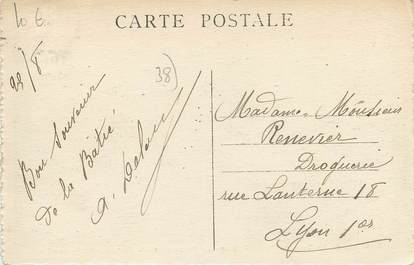 CARTE POSTALE
10 €
38
22/8
Bon Souvenir
de la Bâtie
a.
Madame - Monsieur
Renevier
Droguerie
rue Lanterne 18
Lyon 1er